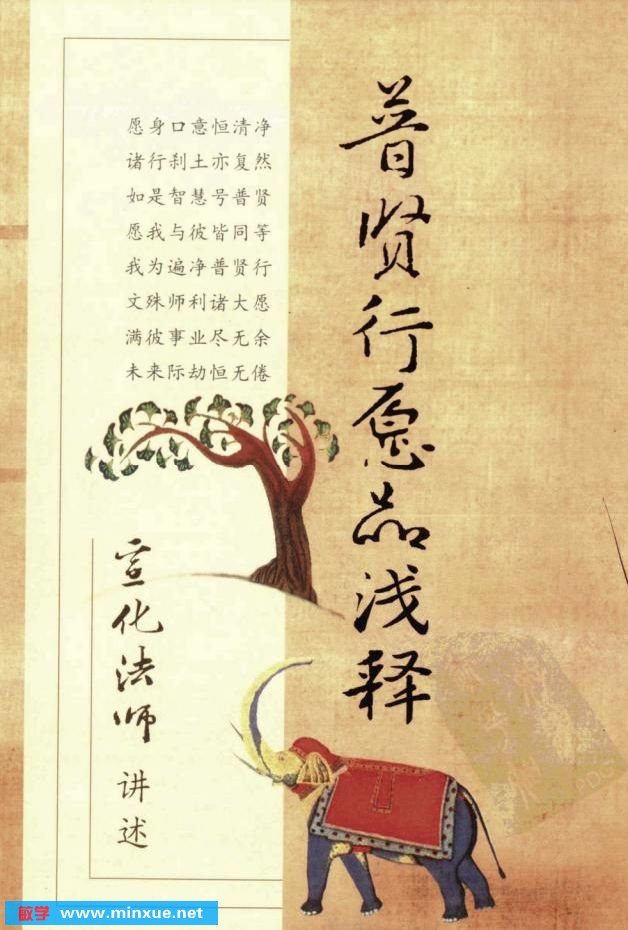 愿身口意恒清净
诸行刹土亦复然
如是智慧号普贤
愿我与彼皆同等
我为遍净普贤行
文殊师利诸大愿
满彼事业尽无余
未来际劫恒无倦
普贤行愿品浅释
宣化法师 讲述
敏学 www.minxue.net